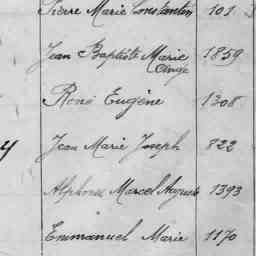 Pierre Marie Constantin 101
Jean Baptiste Marie 1859
Ange
René Eugène 1308
Jean Marie Joseph 822
y
Alphonse Marcel Auguste 1393
Emmanuel Marie 1170